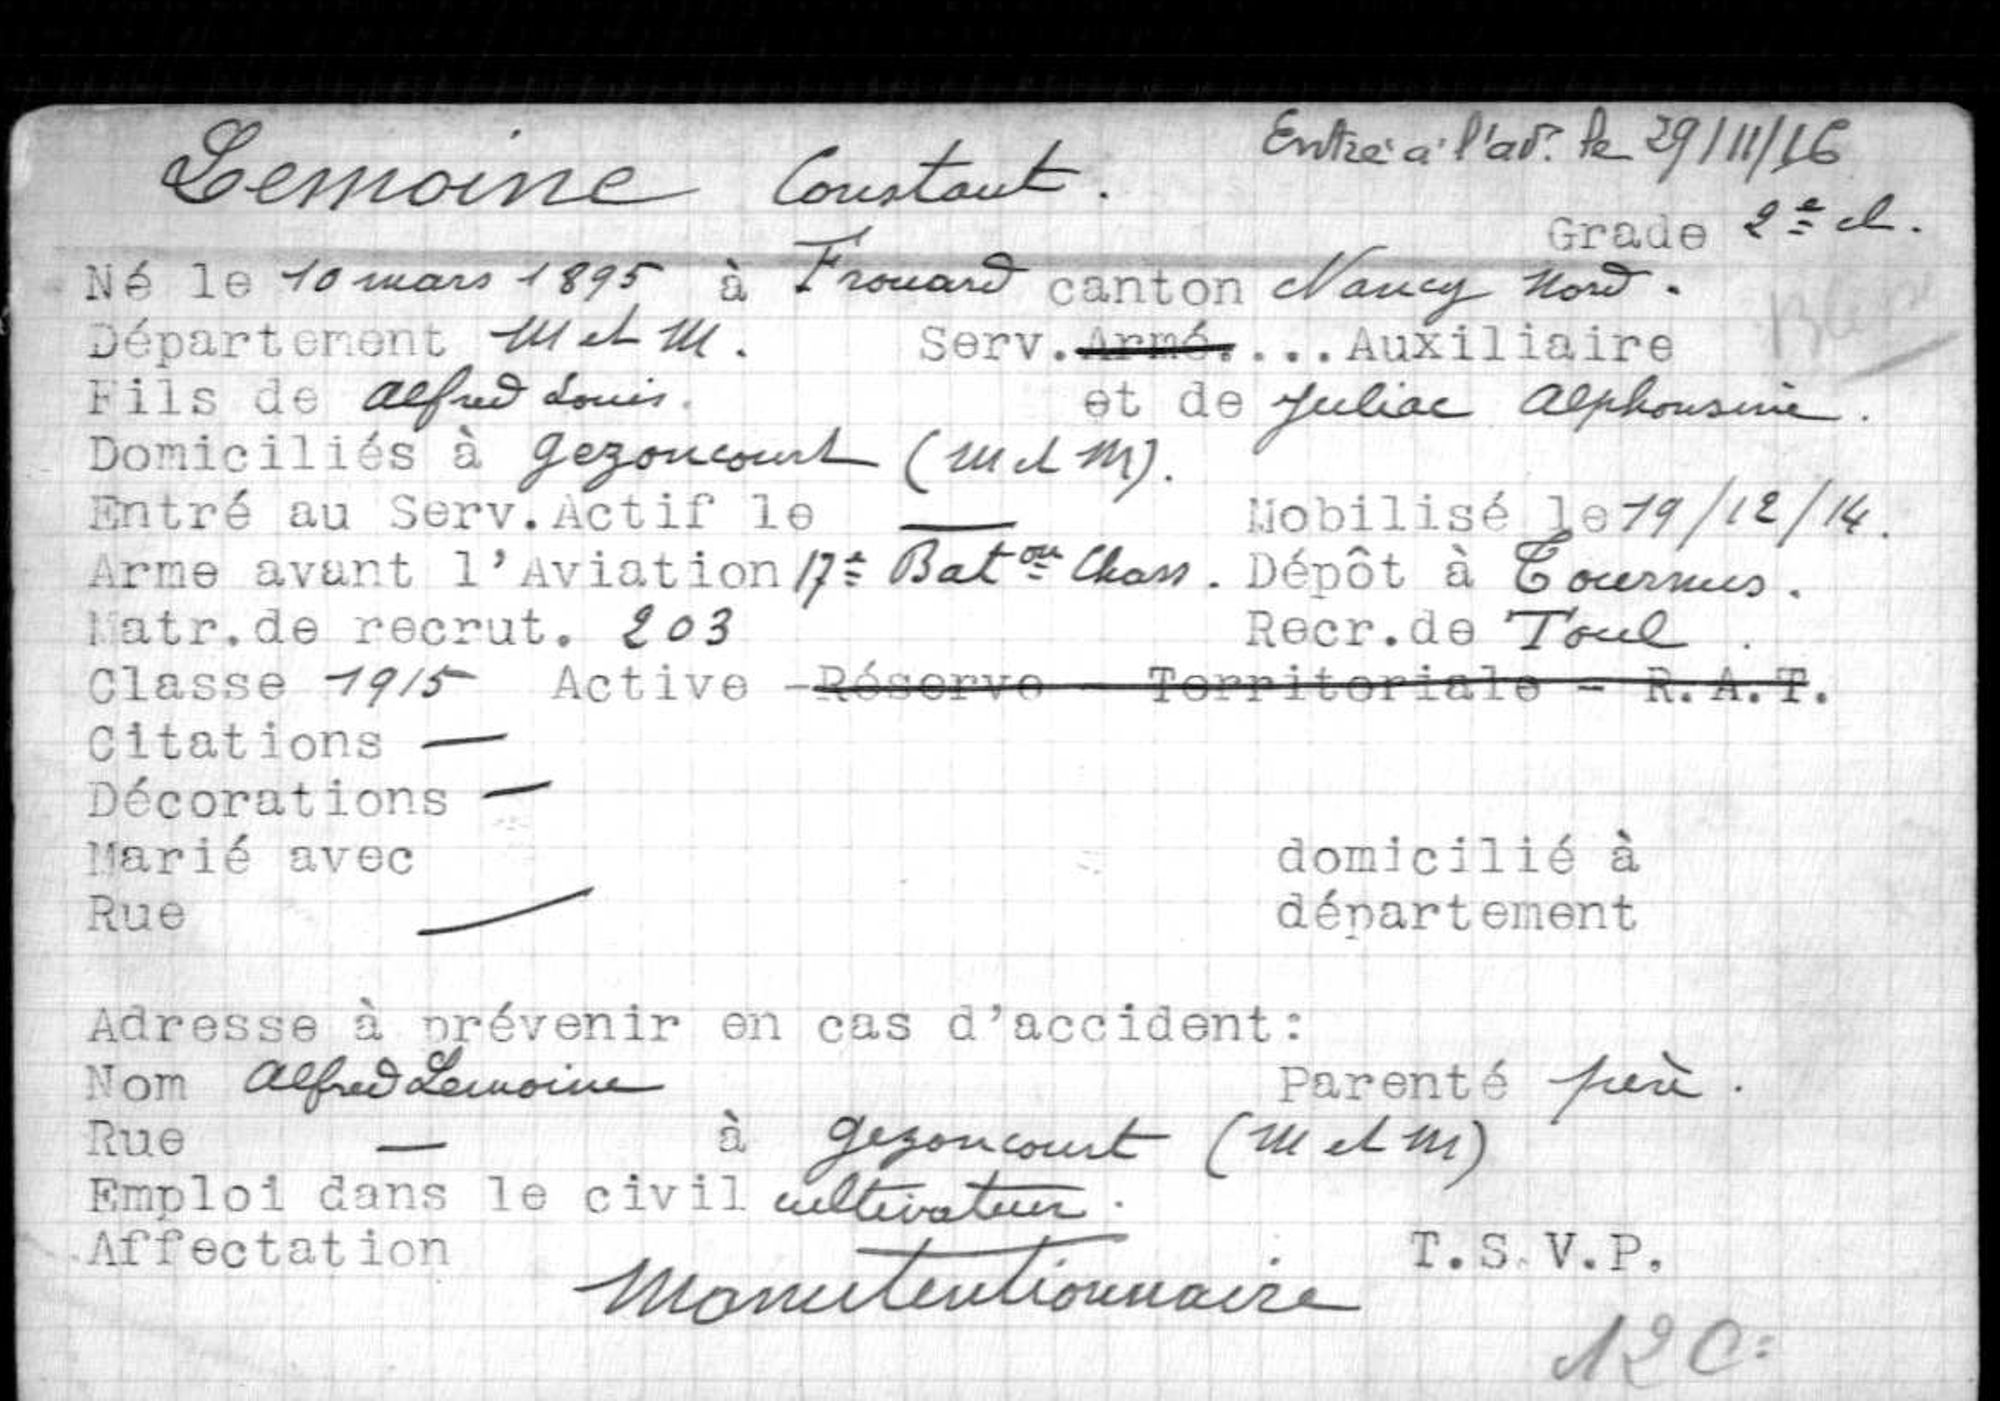 Entré à l'av. le 29/11/16
Lemoine Constant.
Grade 2e cl.
Né le 10 mars 1895 à Frouard canton Nancy Nord.
Département M et M. Serv. Armé.... Auxiliaire
Fils de Alfred Louis. et de Juliac Alphonsine.
Domiciliés à Gezoncourt (M et M).
Entré au Serv.Actif le — Mobilisé le 19/12/14.
Arme avant l'Aviation 17e Baton Chass. Dépôt à Tournus.
Matr.de recrut. 203 Recr.de Toul.
Classe 1915 Active - Réserve - Territoriale - R.A.T.
Citations —
Décorations —
Marié avec domicilié à
Rue — département
Adresse à prévenir en cas d'accident:
Nom Alfred Lemoine Parenté père.
Rue — à Gezoncourt (M et M)
Emploi dans le civil cultivateur.
Affectation T.S.V.P.
Manutentionnaire